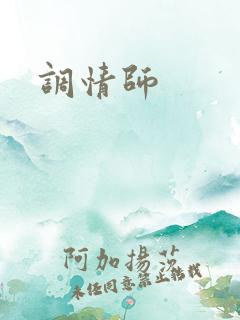 調情師
阿加揚莎
未經同意禁止轉載